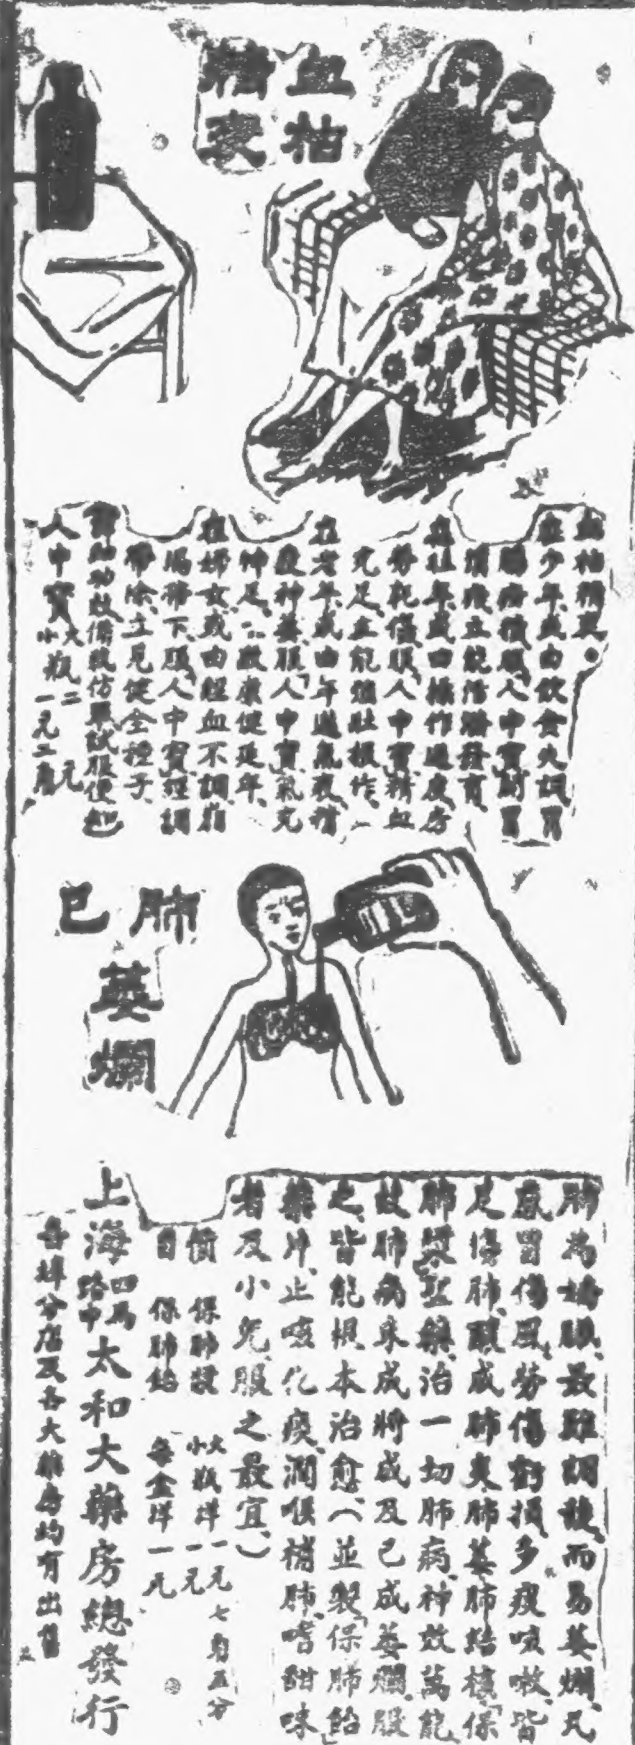 血枯
精衰
血枯精衰。
在少年或由飲食失調胃
腸積服人中寶開胃
立能活潑發育
在壯年或由操作過度房
勞耗傷服人中寶精血
充足立能強壯操作
在老年或由年邁氣衰精
疲神萎服人中寶氣充
神足康健延年
在婦女或由經血不調崩
漏帶下服人中寶經調
帶除立見健全種子
詳細功效備載仿單試服便知
人中寶 大瓶二元
小瓶一元二角
肺已
萎爛
肺為嬌臟、最難調護、而易萎爛、凡
感冒傷風、勞傷虧損、多痰咳嗽、皆
足傷肺、釀成肺炎、肺萎肺結核、「保
肺漿」聖藥、治一切肺病、神效萬能、
故肺病未成將成及已成萎爛、服
之、皆能根本治愈、(並製「保肺飴」
藥片、止咳化痰、潤喉補肺、嗜甜味
者及小兒服之最宜、)
價 保肺漿 大瓶洋一元七角五分
小瓶洋一元
目 保肺飴 每盒洋一元
上海四馬路中太和大藥房總發行
各埠分店及各大藥房均有出售